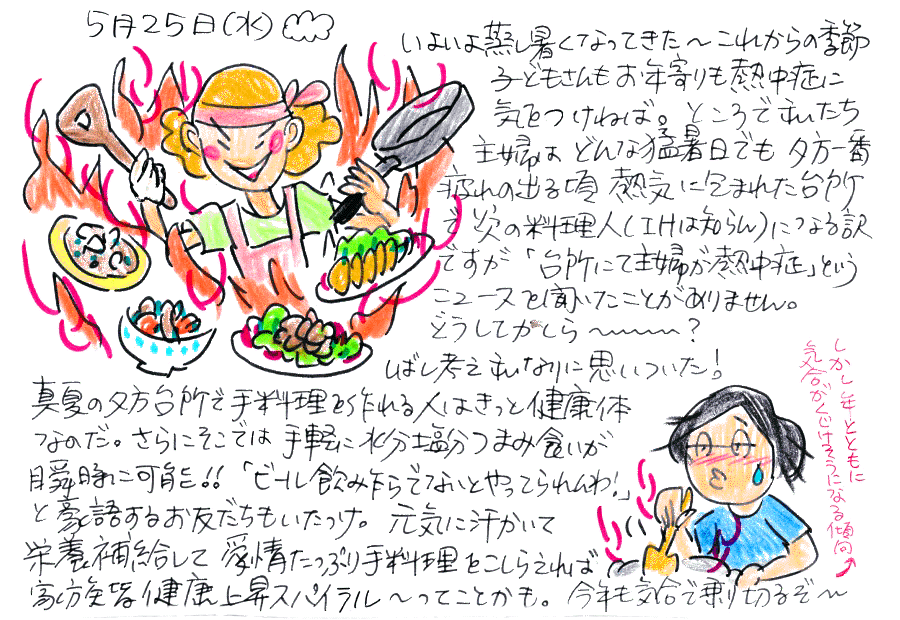 5月25日(水)
いよいよ蒸し暑くなってきた〜これからの季節
子どもさんもお年寄りも熱中症に
気をつけねば。ところでわたしたち
主婦は どんな猛暑日でも 夕方一番
疲れの出る頃 熱気に包まれた台所
で 炎の料理人(IHは知らん)になる訳
ですが「台所にて主婦が熱中症」という
ニュースを聞いたことがありません。
どうしてかしら〜〜〜?
しばし考えわたしなりに思いついた!
真夏の夕方台所で手料理を作れる人はきっと健康体
なのだ。さらにそこでは 手軽に水分塩分つまみ食いが
瞬時に可能!!「ビール飲み乍らでないとやってられんわ!」
と豪語するお友だちもいたっけ。 元気に汗かいて
栄養補給して 愛情たっぷり手料理をこしらえれば
家族皆健康上昇スパイラル〜ってことかも。今年も気合で乗り切るぞ〜
しかし年とともに
気合がくじけそうになる傾向